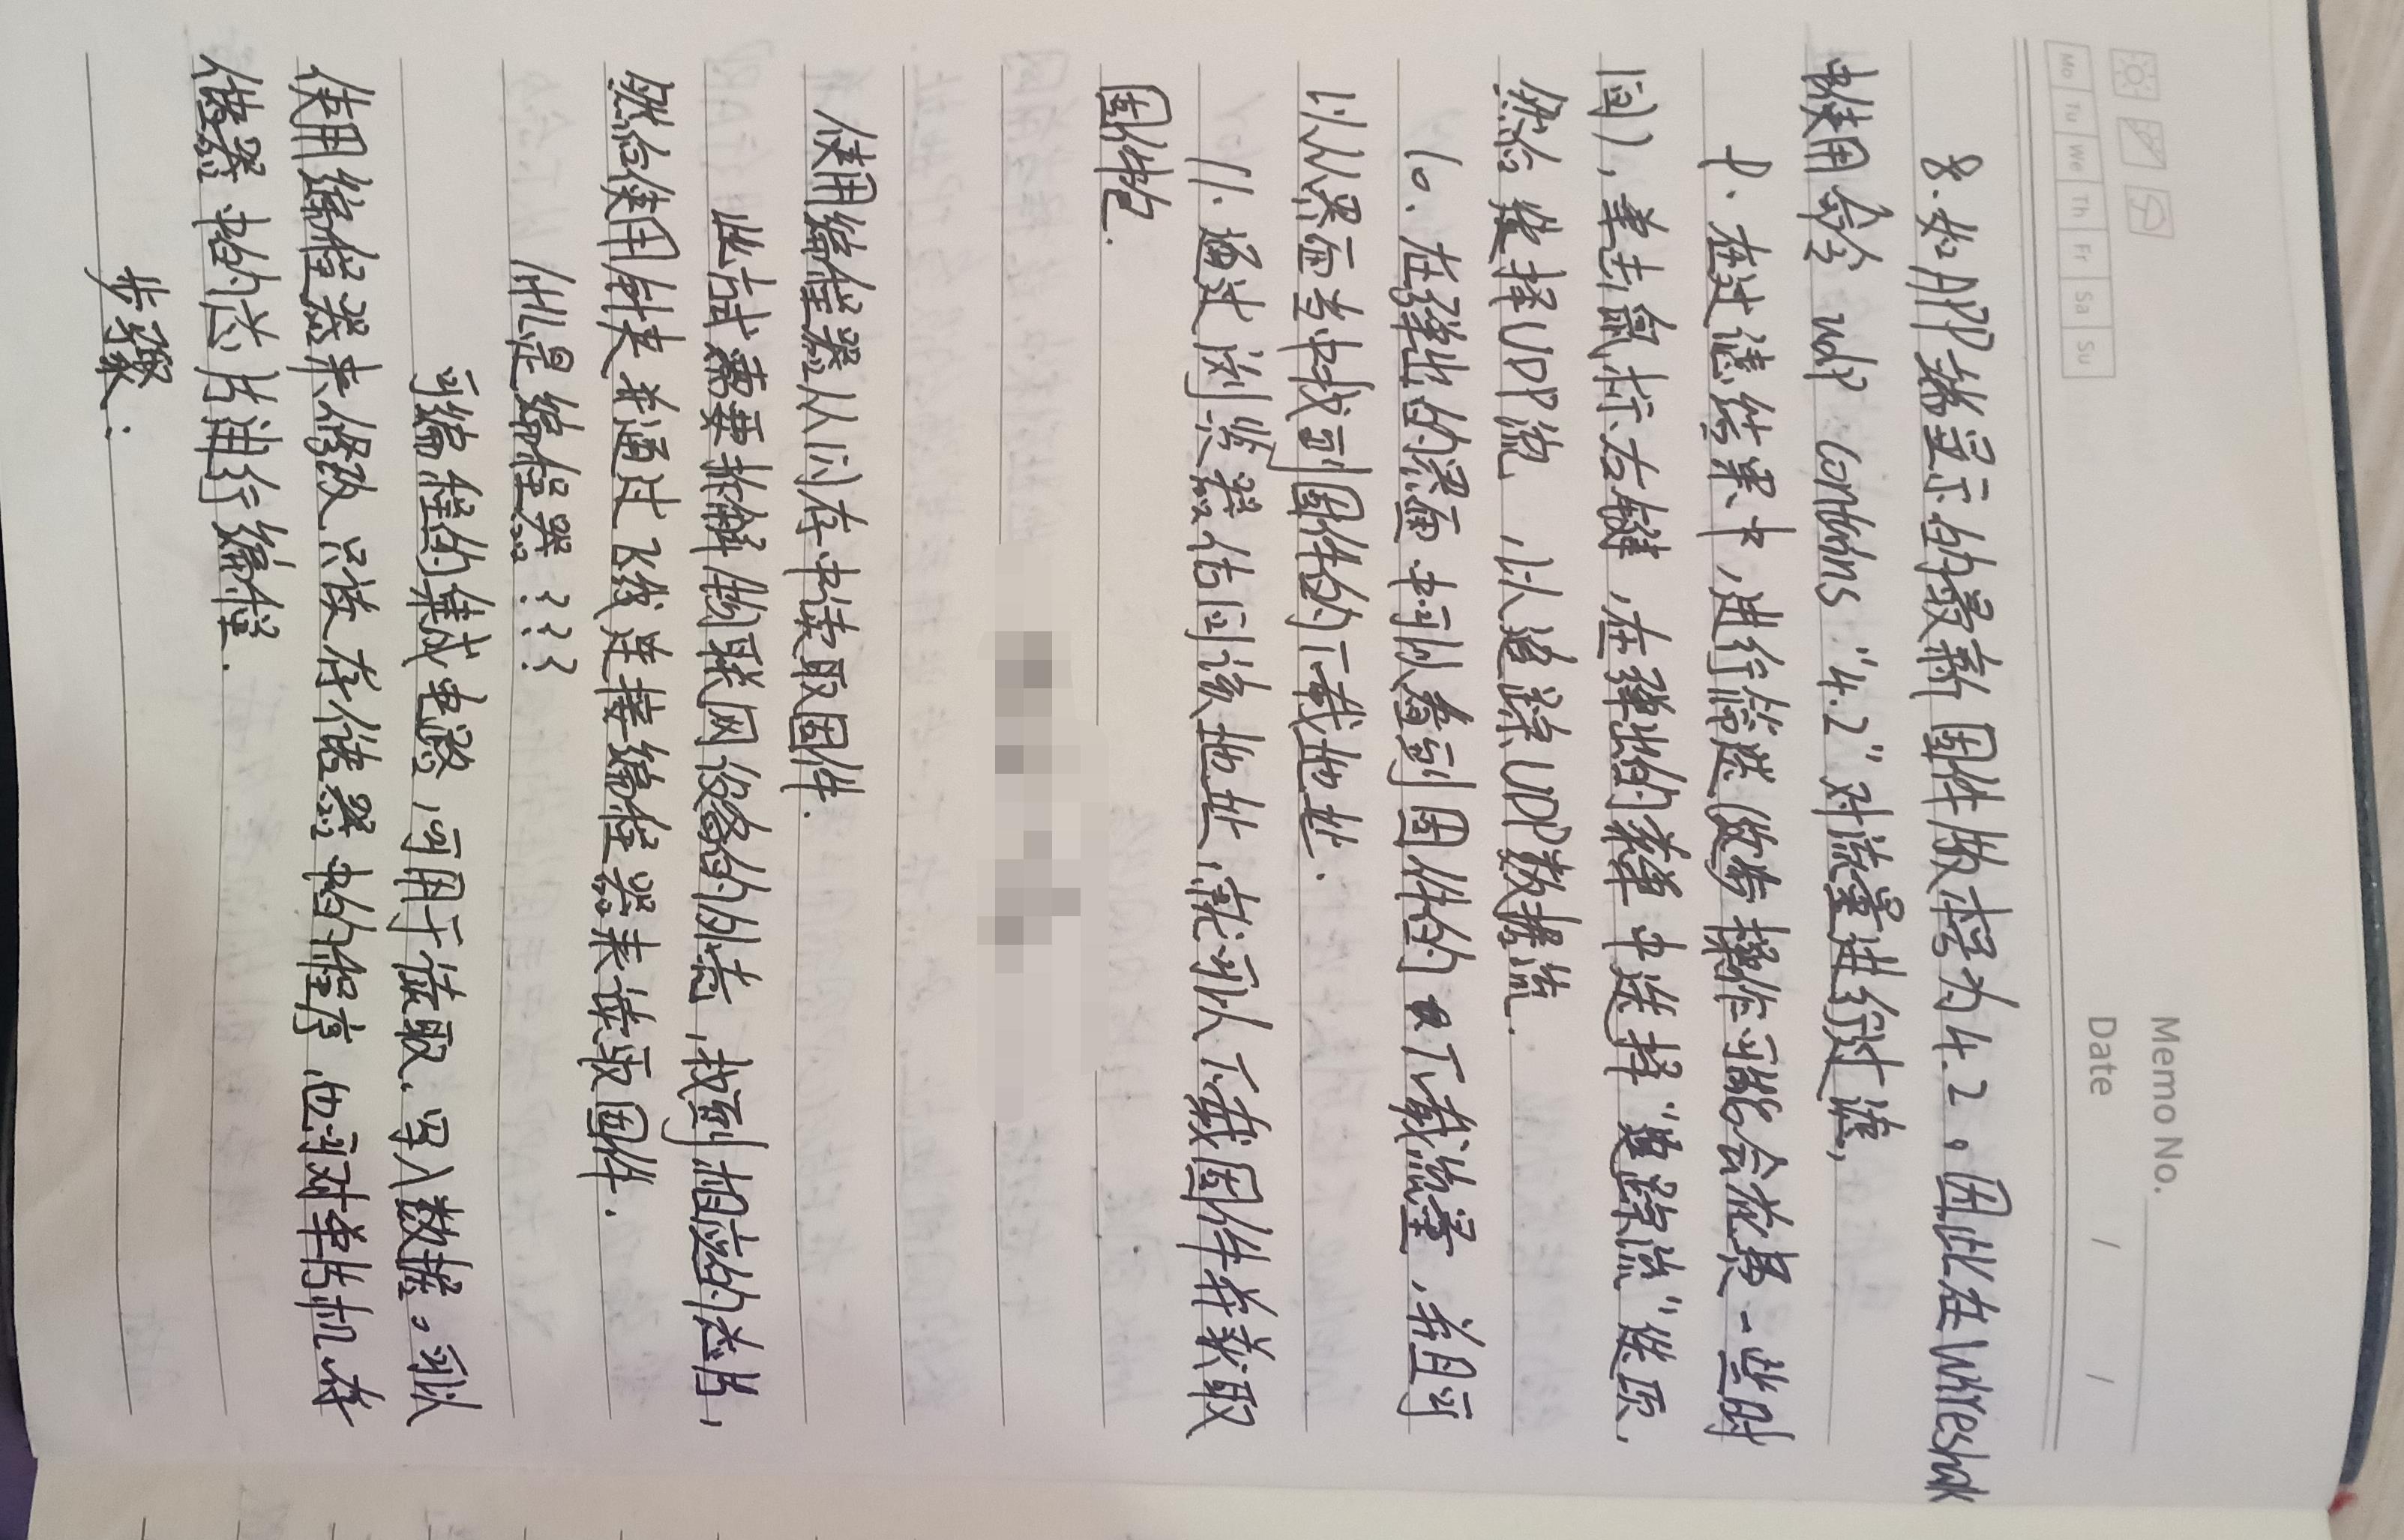 Memo No.
Date / /
Mo Tu We Th Fr Sa Su
8.如APP端显示的最新固件版本号为4.2。因此在Wireshak
中使用命令 udp contains "4.2" 对流量进行过滤,
9.在过滤结果中,进行筛选(此步操作可能会花费一些时
间),单击鼠标右键,在弹出的菜单中选择"追踪流"选项,
然后选择UDP流,以追踪UDP数据流.
10.在弹出的界面中可以看到固件的下载流量,并且可
以从界面当中找到固件的下载地址.
11.通过浏览器访问该地址,就可以下载固件并获取
固件包.
使用编程器从闪存中读取固件.
此方式需要拆解物联网设备的外壳,找到相应的芯片,
然后使用针夹并通过飞线连接编程器来读取固件.
什么是编程器???
可编程的集成电路,可用于读取、写入数据。可以
使用编程器来修改只读存储器中的程序,也可对单片机、存
储器中的芯片进行编程.
步骤: